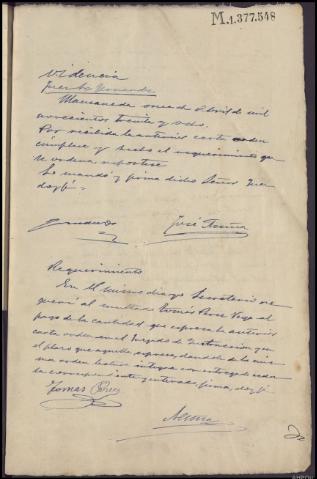 M.1.377.548
Providencia
Juez Sr. Fernandez
Manzaneda once de Abril de mil
novecientos treinta y ocho.
Por recibida la anterior carta orden
cúmplase y hecho el requerimiento que
se ordena repórtese
Lo mandó y firma dicho Señor Juez
doy fé =
José
Requerimiento
En el mismo dia yo Secretario re-
querí al multado Tomás Perez Vega al
pago de la cantidad que expresa la anterior
carta orden en el Juzgado de Instrucción y en
el plazo que aquella expresa, dandole de la mis-
ma orden lectura integra con entrega de cedu-
la correspondiente y enterado firma, doy fé.
Tomas Perez